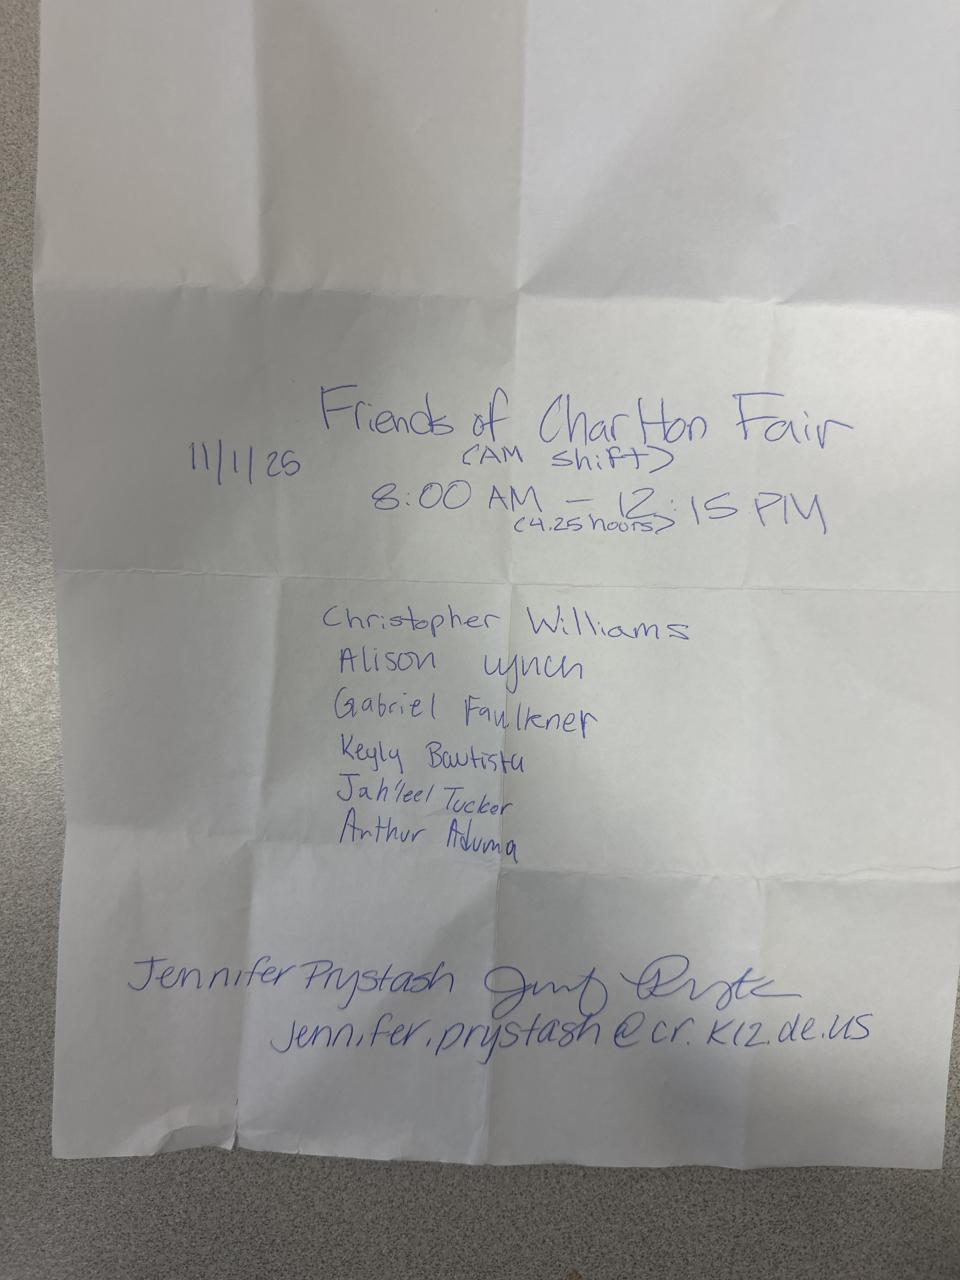 Friends of Charlton Fair
(AM shift)
11/1/25
8:00 AM – 12:15 PM
(4.25 hours)
Christopher Williams
Alison Lynch
Gabriel Faulkner
Keyly Bautista
Jah'leel Tucker
Arthur Aduma
Jennifer Prystash
jennifer.prystash@cr.k12.de.us